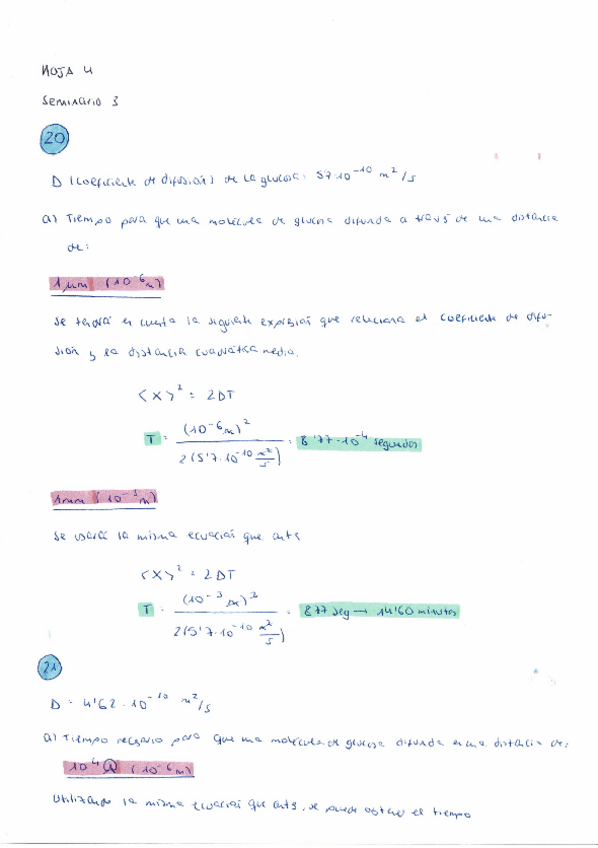 HOJA 4
SEMINARIO 3
20
D (coeficiente de difusión) de la glucosa: 5'7·10⁻¹⁰ m²/s
a) Tiempo para que una molécula de glucosa difunda a través de una distancia
de:
1 µm (10⁻⁶m)
Se tendrá en cuenta la siguiente expresión que relaciona el coeficiente de difu-
sión y la distancia cuadrática media.
<X>² = 2DT
T = (10⁻⁶m)² / 2(5'7·10⁻¹⁰ m²/s) = 8'77·10⁻⁴ segundos
1mm (10⁻³m)
Se usará la misma ecuación que antes
<X>² = 2DT
T = (10⁻³m)² / 2(5'7·10⁻¹⁰ m²/s) = 877 seg → 14'60 minutos
21
D = 4'62·10⁻¹⁰ m²/s
a) Tiempo necesario para que una molécula de glucosa difunda en una distancia de:
10⁴ Å (10⁻⁶m)
Utilizando la misma ecuación que antes, se puede obtener el tiempo